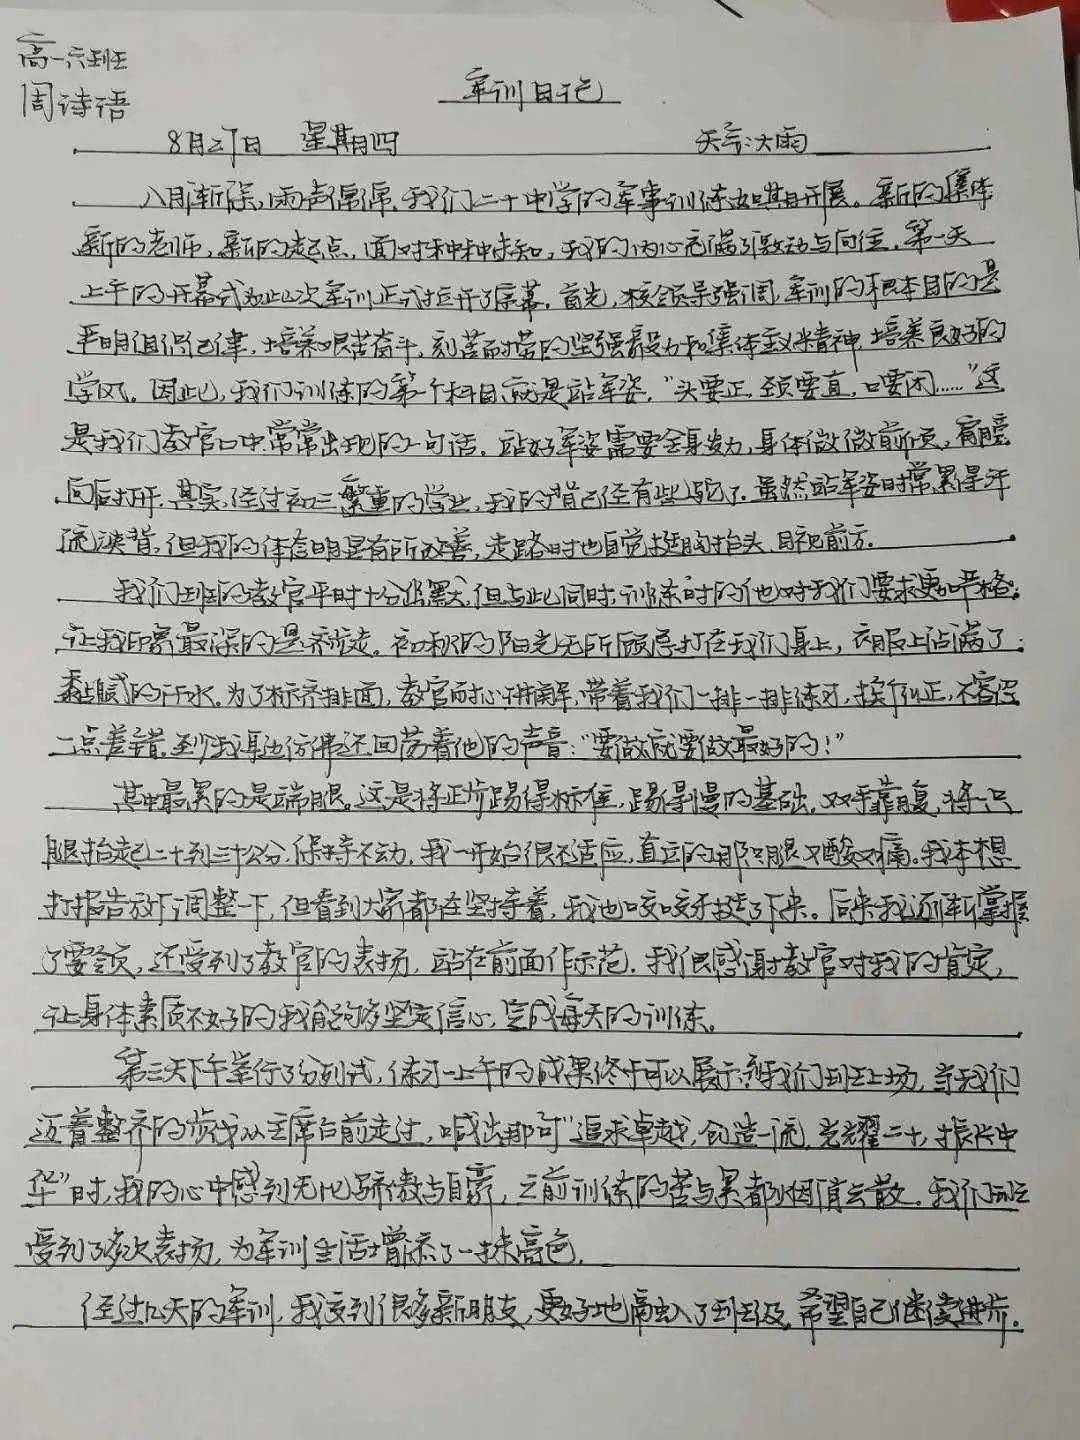 高一六班
周诗语
军训日记
8月27日 星期四 天气:大雨
八月渐深,雨声潺潺,我们二十中学的军事训练如期开展。新的集体
新的老师,新的起点,面对种种未知,我的内心充满了激动与向往。第一天
上午的开幕式为此次军训正式拉开了序幕。首先,校领导强调,军训的根本目的是
严明组织纪律,培养艰苦奋斗,刻苦耐劳的坚强毅力和集体主义精神,培养良好的
学风。因此,我们训练的第一个科目就是站军姿,“头要正,颈要直,口要闭……”这
是我们教官口中常常出现的一句话。站好军姿需要全身发力,身体微微前倾,肩膀
向后打开。其实,经过初三繁重的学业,我的背已经有些驼了。虽然站军姿时常累得汗
流浃背,但我的体态明显有所改善,走路时也自觉挺胸抬头,目视前方。
我们班的教官平时十分幽默,但与此同时,训练时的他对于我们要求更严格;
让我印象最深的是齐步走。初秋的阳光无所顾忌打在我们身上,衣服上沾满了
黏腻的汗水。为了标齐排面,教官耐心讲解,带着我们一排一排练习,挨个纠正,不容许
一点差错。至少我耳边仿佛还回荡着他的声音:“要做就要做最好的!”
其中最累的是端腿。这是将正步踢得标准,踢得慢的基础。双手靠腹,将一只
腿抬起二十到三十公分,保持不动。我一开始很不适应,直立的那只腿又酸又痛。我本想
打报告放下调整一下,但看到大家都在坚持着,我也咬咬牙挺了下来。后来我逐渐掌握
了要领,还受到了教官的表扬,站在前面作示范。我很感谢教官对我的肯定,
让身体素质不好的我能够坚定信心,完成每天的训练。
第三天下午举行了分列式,练习一上午的成果终于可以展示,到我们班上场,当我们
迈着整齐的步伐从主席台前走过,喊出那句“追求卓越,创造一流,光耀二十,振兴中
华”时,我的心中感到无比骄傲与自豪,之前训练的苦与累都烟消云散。我们班
受到了多次表扬,为军训生活增添了一抹亮色。
经过几天的军训,我交到很多新朋友,更好地融入了班级,希望自己继续进步。